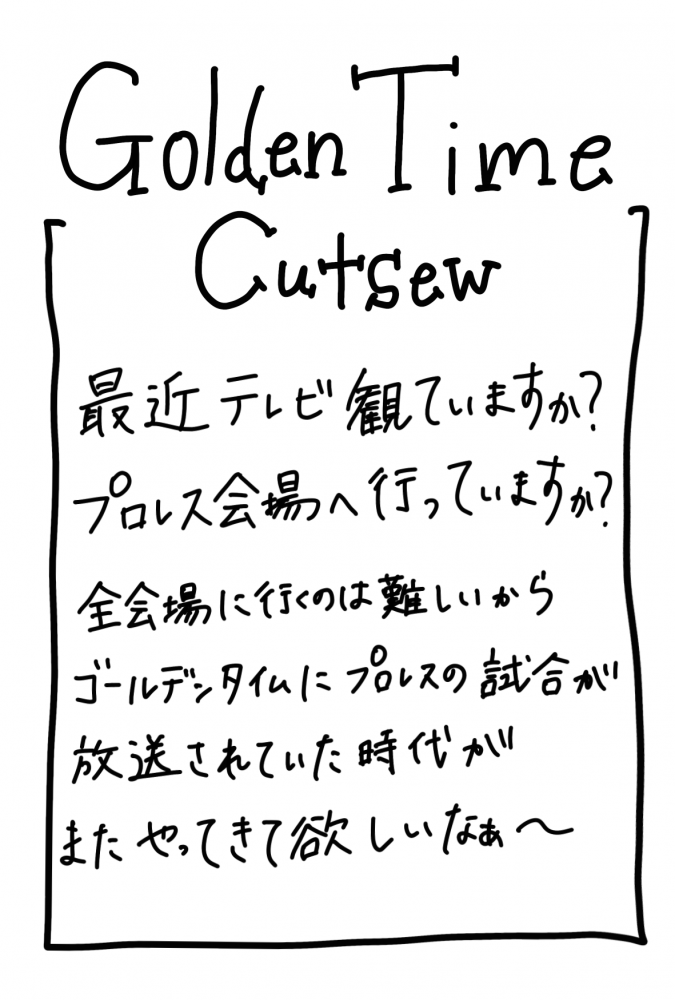 Golden Time
Cutsew
最近テレビ観ていますか?
プロレス会場へ行っていますか?
全会場に行くのは難しいから
ゴールデンタイムにプロレスの試合が
放送されていた時代が
またやってきて欲しいなぁ〜